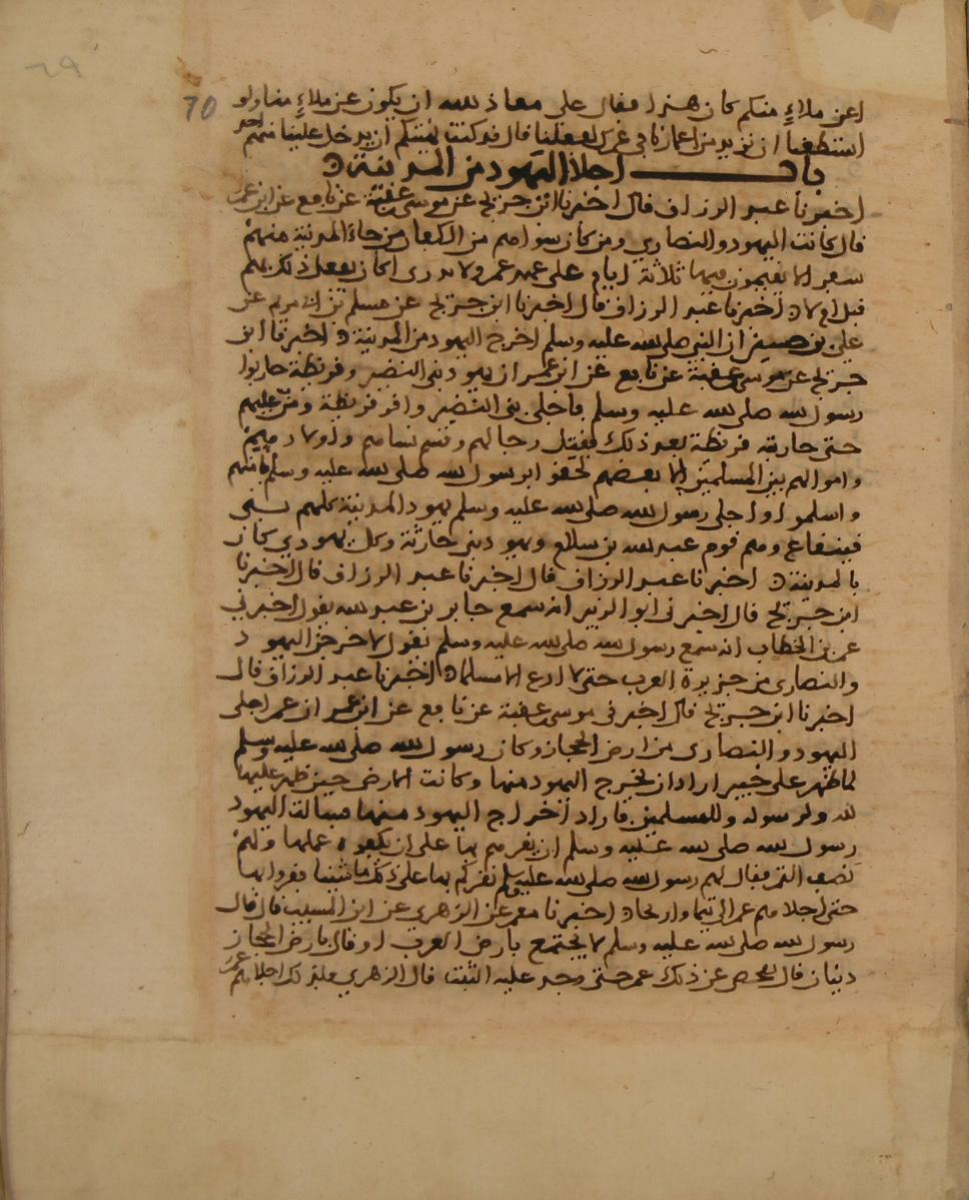 ٦٩
70
اعن ملاءٍ منكم كان هذا فقال علي معاذ الله ان يكون عن ملاءٍ منا ولو
استطعنا ان نزيد من اعمارنا في عمرك لفعلنا قال قد كنت نهيتكم ان يدخل علينا منهم احد
باب اجلاء اليهود من المدينة
اخبرنا عبد الرزاق قال اخبرنا ابن جريج عن موسى بن عقبة عن نافع عن ابن عمر
قال كانت اليهود والنصارى ومن كان سواهم من الكفار من جاء المدينة منهم
سفرا لا يقيمون فيها ثلاثة ايام على عهد عمر ولا ندرى اكان يفعل ذلك بهم
قبل ام لا اخبرنا عبد الرزاق قال اخبرنا ابن جريج عن مسلم بن ابي مريم عن
علي بن حسين ان النبي صلى الله عليه وسلم اخرج اليهود من المدينة اخبرنا ابن
جريج عن موسى بن عقبة عن نافع عن ابن عمر ان يهود بنى النضير وقريظة حاربوا
رسول الله صلى الله عليه وسلم فاجلى بنى النضير واقر قريظة ومن عليهم
حتى حاربته قريظة بعد ذلك فقتل رجالهم وقسم نساهم واولادهم
واموالهم بين المسلمين الا بعضهم لحقوا برسول الله صلى الله عليه وسلم فامنهم
واسلموا واجلى رسول الله صلى الله عليه وسلم يهود المدينة كلهم بنى
قينقاع وهم قوم عبد الله بن سلام ويهود بنى حارثة وكل يهودي كان
بالمدينة اخبرنا عبد الرزاق قال اخبرنا عبد الرزاق قال اخبرنا
ابن جريج قال اخبرنى ابو الزبير انه سمع جابر بن عبد الله يقول اخبرني
عمر بن الخطاب انه سمع رسول الله صلى الله عليه وسلم يقول لاخرجن اليهود
والنصارى من جزيرة العرب حتى لا ادع الا مسلما اخبرنا عبد الرزاق قال
اخبرنا ابن جريج قال اخبرنى موسى بن عقبة عن نافع عن ابن عمر ان عمر اجلى
اليهود والنصارى من ارض الحجاز وكان رسول الله صلى الله عليه وسلم
لما ظهر على خيبر اراد ان يخرج اليهود منها وكانت الارض حين ظهر عليها
لله ولرسوله وللمسلمين فاراد اخراج اليهود منها فسالت اليهود
رسول الله صلى الله عليه وسلم ان يقرهم بها على ان يكفوه عملها ولهم
نصف الثمر فقال لهم رسول الله صلى الله عليه وسلم نقركم بها على ذلك ما شئنا فقروا بها
حتى اجلاهم عمر الى تيما واريحا اخبرنا معمر عن الزهري عن ابن المسيب قال قال
رسول الله صلى الله عليه وسلم لا يجتمع بارض العرب او قال بارض الحجاز
دينان قال ففحص عن ذلك عمر حتى وجد عليه الثبت قال الزهري فلذلك اجلاهم عمر